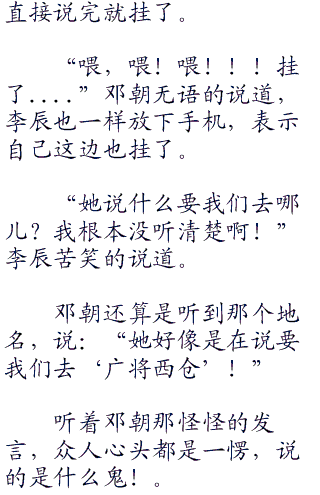 直接说完就挂了。
“喂，喂！喂！！！挂
了....”邓朝无语的说道，
李辰也一样放下手机，表示
自己这边也挂了。
“她说什么要我们去哪
儿？我根本没听清楚啊！”
李辰苦笑的说道。
邓朝还算是听到那个地
名，说：“她好像是在说要
我们去‘广将西仓’！”
听着邓朝那怪怪的发
言，众人心头都是一愣，说
的是什么鬼！。